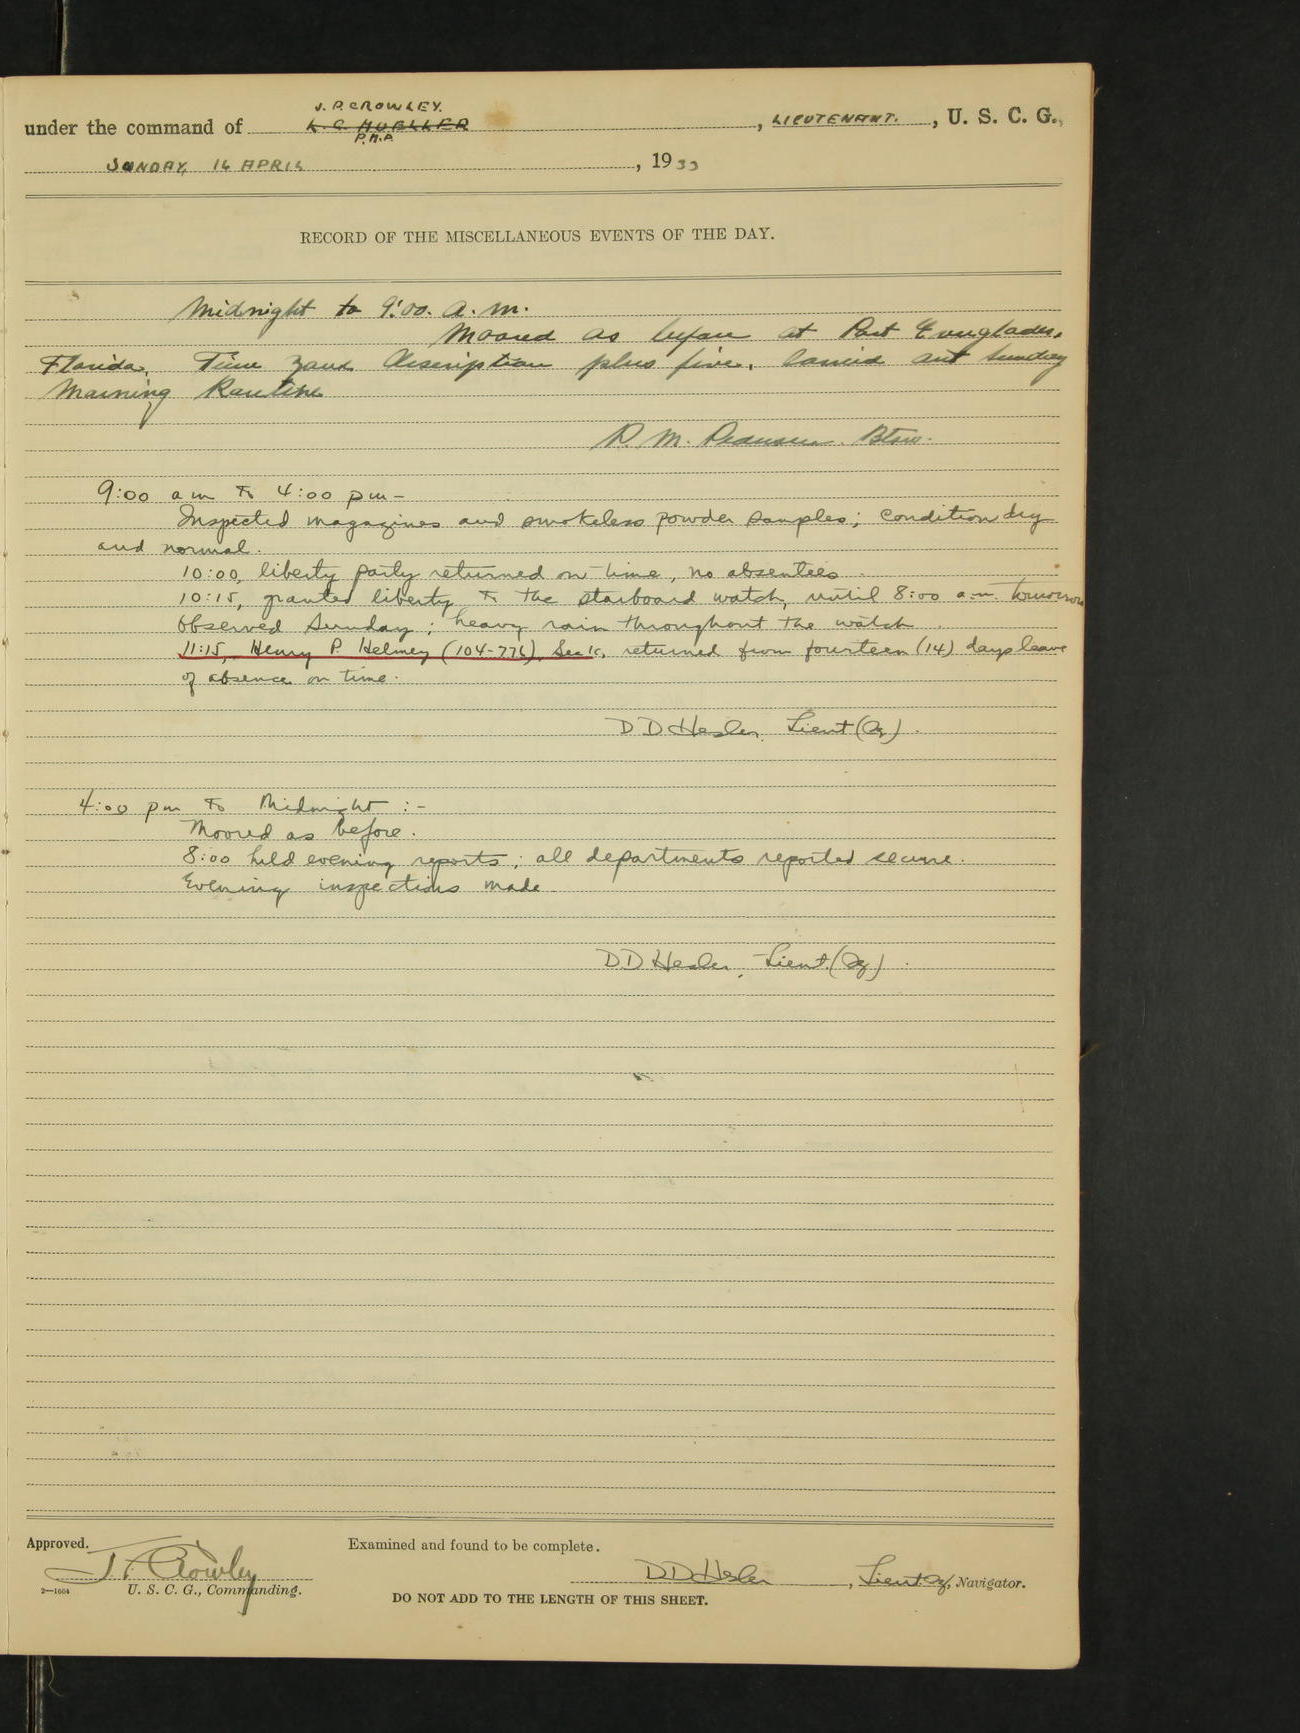 J. P. CROWLEY.
under the command of L. C. MUELLER, LIEUTENANT., U. S. C. G.,
P.H.P.
SUNDAY, 16 APRIL, 1933
RECORD OF THE MISCELLANEOUS EVENTS OF THE DAY.
Midnight to 9:00. a. m.
Moored as before at Port Everglades,
Florida, Time zone description plus five. Carried out Sunday
Morning Routine
R. M. Btsw.
9:00 am to 4:00 pm-
Inspected magazines and smokeless powder samples; condition dry
and normal.
10:00, liberty party returned on time, no absentees.
10:15, granted liberty to the starboard watch, until 8:00 a.m. tomorrow
Observed Sunday; heavy rain throughout the watch.
11:15, Henry P. Helmey (104-776), Sea 1c, returned from fourteen (14) days leave
of absence on time.
D D Hesler, Lieut (Jg).
4:00 pm to Midnight :-
Moored as before.
8:00 held evening reports; all departments reported secure.
Evening inspections made.
D D Hesler, Lieut. (Jg).
Approved.
Examined and found to be complete.
J. P. Crowley
D D Hesler, Lieut Jg, Navigator.
2—1604 U. S. C. G., Commanding.
DO NOT ADD TO THE LENGTH OF THIS SHEET.